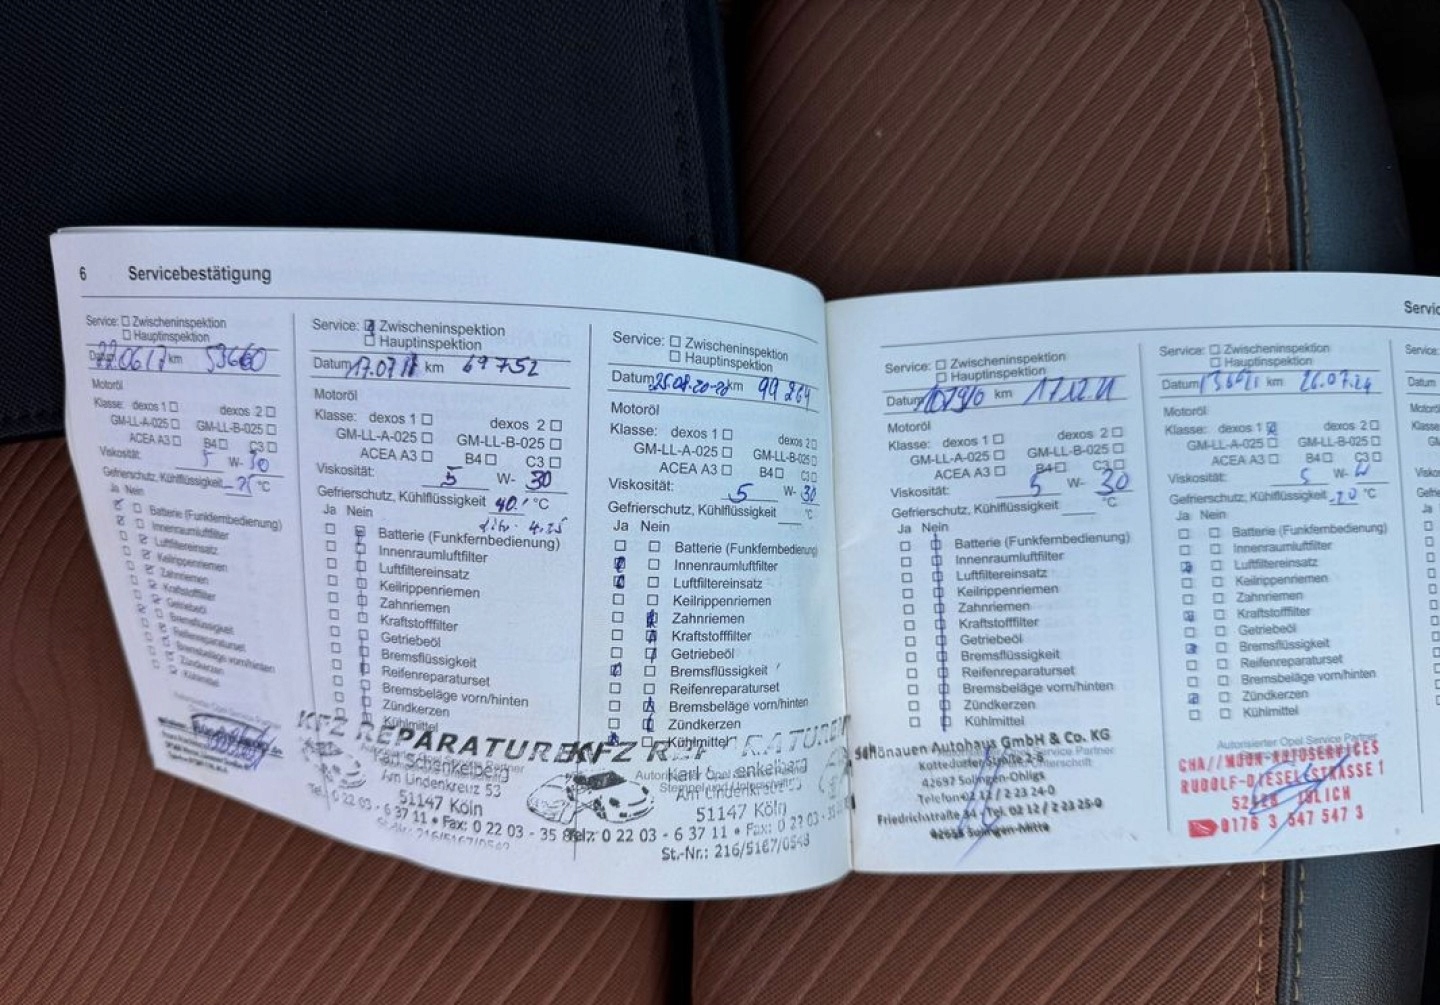 6 Servicebestätigung
Service: Zwischeninspektion
Hauptinspektion
km 53660
Motoröl
Klasse: dexos 1 dexos 2
GM-LL-A-025 GM-LL-B-025
ACEA A3 B4 C3
Viskosität: 5 W- 30
Gefrierschutz, Kühlflüssigkeit °C
Ja Nein
Batterie (Funkfernbedienung)
Innenraumluftfilter
Luftfiltereinsatz
Keilrippenriemen
Zahnriemen
Kraftstofffilter
Getriebeöl
Bremsflüssigkeit
Reifenreparaturset
Bremsbeläge vorn/hinten
Zündkerzen
Kühlmittel
Service: Zwischeninspektion
Hauptinspektion
Datum 17.07.18 km 69752
Motoröl
Klasse: dexos 1 dexos 2
GM-LL-A-025 GM-LL-B-025
ACEA A3 B4 C3
Viskosität: 5 W- 30
Gefrierschutz, Kühlflüssigkeit 40 °C
4.25
Ja Nein
Batterie (Funkfernbedienung)
Innenraumluftfilter
Luftfiltereinsatz
Keilrippenriemen
Zahnriemen
Kraftstofffilter
Getriebeöl
Bremsflüssigkeit
Reifenreparaturset
Bremsbeläge vorn/hinten
Zündkerzen
Kühlmittel
KFZ REPARATUREN
Karl Schenkelberg
Am Lindenkreuz 53
51147 Köln
Tel. 0 22 03 - 6 37 11 • Fax: 0 22 03 - 35
Service: Zwischeninspektion
Hauptinspektion
Datum 25.08.2020 km 99264
Motoröl
Klasse: dexos 1 dexos 2
GM-LL-A-025 GM-LL-B-025
ACEA A3 B4 C3
Viskosität: 5 W- 30
Gefrierschutz, Kühlflüssigkeit °C
Ja Nein
Batterie (Funkfernbedienung)
Innenraumluftfilter
Luftfiltereinsatz
Keilrippenriemen
Zahnriemen
Kraftstofffilter
Getriebeöl
Bremsflüssigkeit
Reifenreparaturset
Bremsbeläge vorn/hinten
Zündkerzen
Kühlmittel
KFZ REPARATUREN
Karl Schenkelberg
Am Lindenkreuz
51147 Köln
Tel.: 0 22 03 - 6 37 11 • Fax: 0 22 03
St.-Nr.: 216/5167/0548
Service: Zwischeninspektion
Hauptinspektion
Datum km
Motoröl
Klasse: dexos 1 dexos 2
GM-LL-A-025 GM-LL-B-025
ACEA A3 B4 C3
Viskosität: 5 W- 30
Gefrierschutz, Kühlflüssigkeit °C
Ja Nein
Batterie (Funkfernbedienung)
Innenraumluftfilter
Luftfiltereinsatz
Keilrippenriemen
Zahnriemen
Kraftstofffilter
Getriebeöl
Bremsflüssigkeit
Reifenreparaturset
Bremsbeläge vorn/hinten
Zündkerzen
Kühlmittel
Schönauen Autohaus GmbH & Co. KG
Kottedorfer Straße 2-8
42697 Solingen-Ohligs
Telefon 02 12 / 2 23 24-0
Friedrichstraße Tel. 02 12 / 2 23 25-0
42655 Solingen-Mitte
Service: Zwischeninspektion
Hauptinspektion
Datum km 26.07.24
Motoröl
Klasse: dexos 1 dexos 2
GM-LL-A-025 GM-LL-B-025
ACEA A3 B4 C3
Viskosität: 5 W-
Gefrierschutz, Kühlflüssigkeit -20 °C
Ja Nein
Batterie (Funkfernbedienung)
Innenraumluftfilter
Luftfiltereinsatz
Keilrippenriemen
Zahnriemen
Kraftstofffilter
Getriebeöl
Bremsflüssigkeit
Reifenreparaturset
Bremsbeläge vorn/hinten
Zündkerzen
Kühlmittel
Autorisierter Opel Service Partner
CHA//MOON-AUTOSERVICES
RUDOLF-DIESEL-STRASSE 1
52428 JÜLICH
0176 3 547 547 3
Servic
Service:
Datum
Motoröl
Klasse